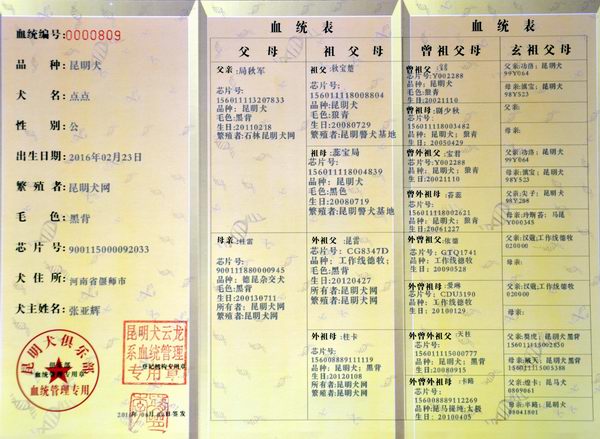 血统编号:0000809
品 种:昆明犬
犬 名:点点
性 别:公
出生日期:2016年02月23日
繁殖者:昆明犬网
毛 色:黑背
芯片号:900115000092033
犬住所:河南省偃师市
犬主姓名:张亚辉
昆明犬俱乐部
血统管理专用
昆明犬云龙
系血统管理
专用章
血统表
父母
祖父母
父亲:局秋军
芯片号:
156011113207833
品种:昆明犬
毛色:黑背
生日:20110218
繁殖者:石林昆明犬网
母亲:桂雷
芯片号:
900118800000945
品种:德昆杂交犬
毛色:黑背
生日:20130711
所有者:昆明犬网
繁殖者:昆明犬网
祖父:秋宝楚
芯片号:
156011118008804
品种:昆明犬
毛色:狼青
生日:20080729
繁殖者:昆明警犬基地
祖母:蕊宝局
芯片号:
156011118004839
品种:昆明犬
毛色:黑色
生日:20080719
繁殖者:昆明警犬基地
外祖父:昆雷
芯片号:CG8347D
品种:工作线德牧;
毛色:黑背
生日:20120427
所有者:昆明犬网
繁殖者:昆明犬网
外祖母:桂卡
芯片号:
156008889111119
品种:昆明犬
毛色:黑背
生日:20120108
所有者:昆明犬网
繁殖者:昆明犬网
血统表
曾祖父母
玄祖父母
曾祖父:
芯片号:Y002288
品种:昆明犬;
狼青
生日:20021110
曾祖母:剧少秋
芯片号:
156011113003482
品种:昆明犬; 狼青
生日:20050429
曾外祖父:宝君
芯片号:Y002288
品种:昆明犬;狼青
生日:20021110
曾外祖母:
芯片号:
156011118002621
品种:昆明犬; 狼青
生日:20061227
外曾祖父:张德
芯片号:GTQ1741
品种:工作线德牧
生日:20090528
外曾祖母:爱琳
芯片号:CDU5190
品种:工作线德牧
生日:20100129
外曾外祖父:天柱
芯片号:
156011115000777
品种:昆明犬; 黑背
生日:20090915
外曾外祖母:卡路
芯片号:
156008889112269
品种:昆马提纯:太极
生日:20100405
父亲:功洛: 昆明犬
99Y064
母亲:滇宝: 昆明犬
98Y523
父亲:
母亲:
父亲:功洛: 昆明犬
99Y064
母亲:滇宝: 昆明犬
98Y523
父亲:尖子: 昆明犬
母亲:玲斯苔: 马昆
Y000345
父亲:汉蔻,工作线德牧
020000
母亲:
父亲:汉蔻:工作线德牧
020000
母亲:
昆明犬黑背
156011115002850
昆明犬黑背
156011115000988
昆马犬
0809061
昆马犬
08041801